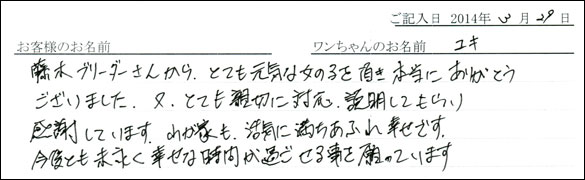 ご記入日 2014年 3月 29日
お客様のお名前 ワンちゃんのお名前 ユキ
藤木ブリーダーさんから、とても元気な女の子を頂き本当にありがとう
ございました。又、とても親切に対応、説明してもらい
感謝しています。わが家も、活気に満ちあふれ幸せです。
今後とも末永く幸せな時間が過ごせる事を願っています